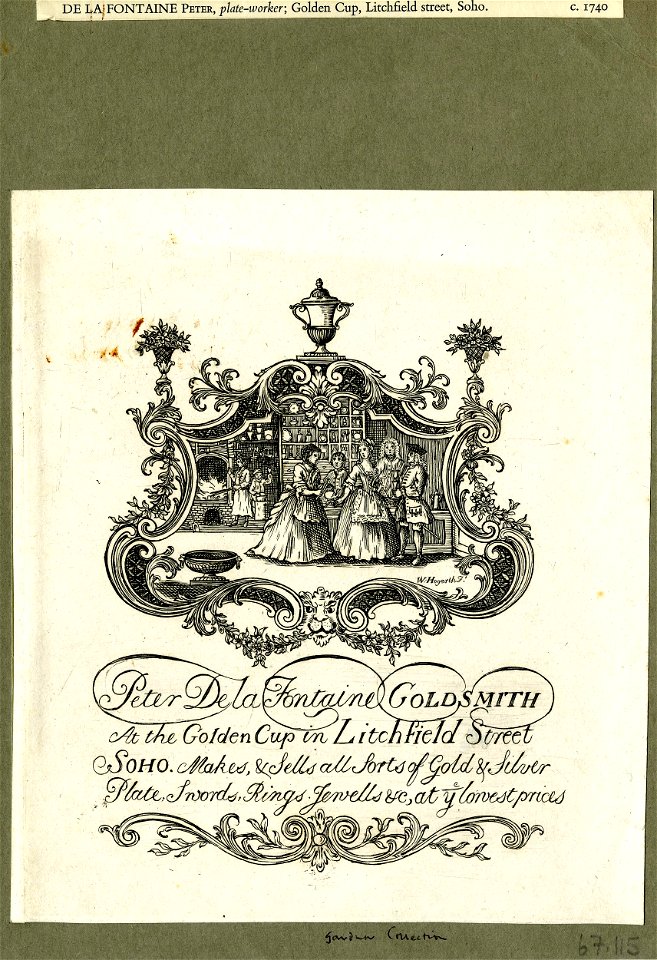 DE LA FONTAINE PETER, plate-worker; Golden Cup, Litchfield street, Soho. c. 1740
W. Hogarth F.
Peter De la Fontaine GOLDSMITH
At the Golden Cup in Litchfield Street
SOHO. Makes, & Sells all Sorts of Gold & Silver
Plate, Swords, Rings, Jewells &c, at yᵉ lowest prices
Gardner Collection
67.115